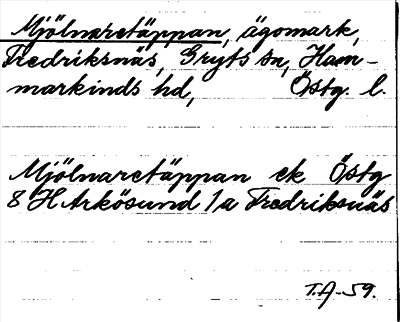 Mjölnaretäppan, ägomark,
Fredriksnäs, Gryts sn, Ham-
markinds hd, Östg. l.
Mjölnaretäppan ek Östg
8 H Arkösund 1a Fredriksnäs
T.A-59.